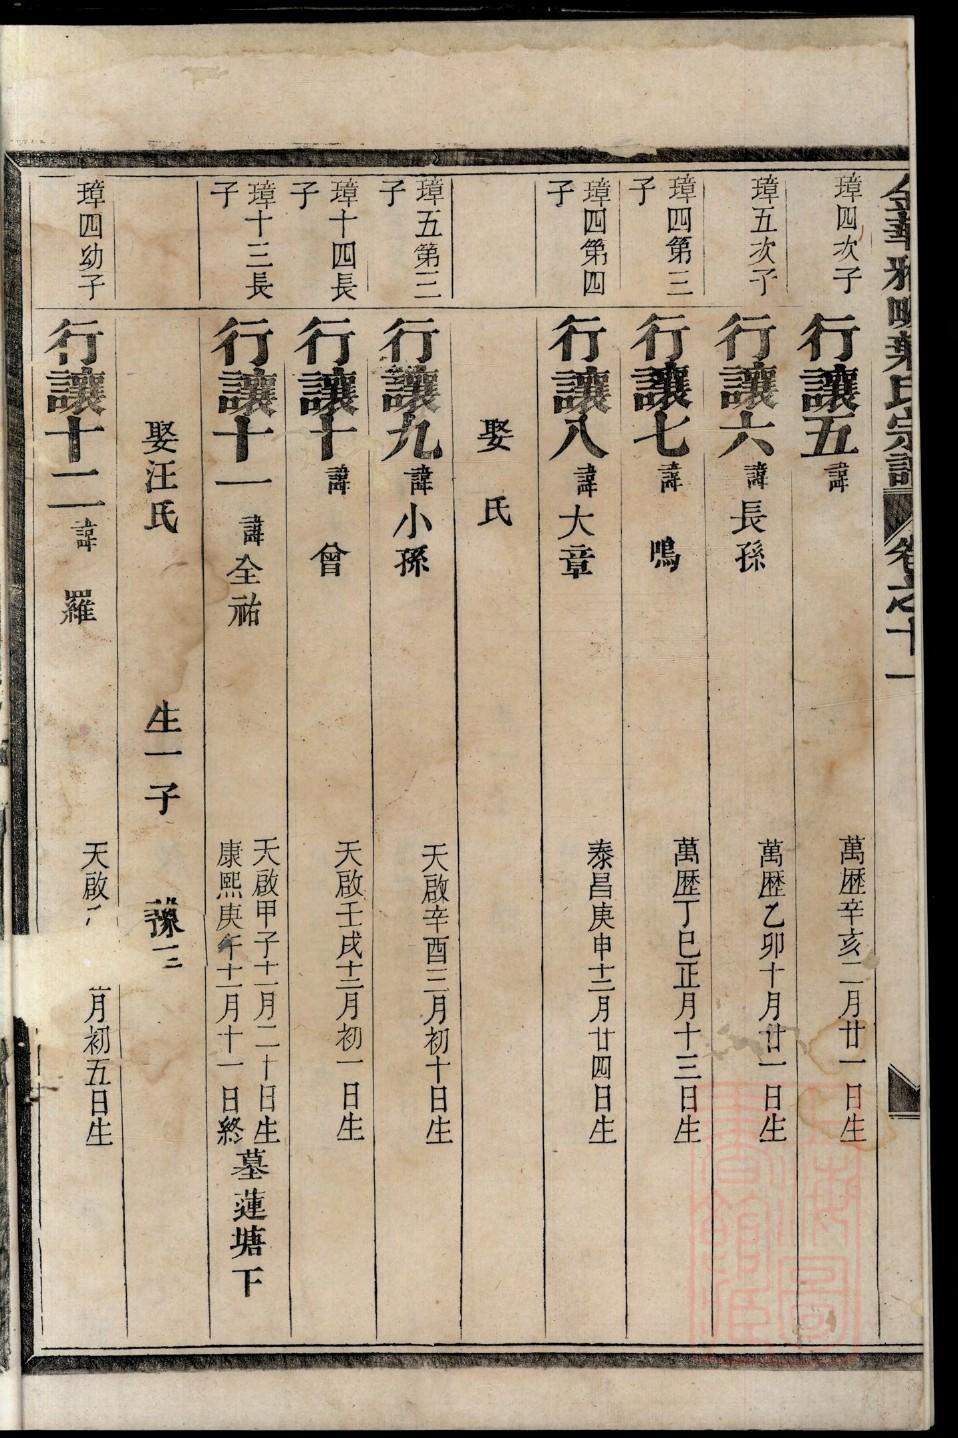 金華雅畈葉氏宗譜 卷之十一
璋四次子
行讓五 諱 萬歷辛亥二月廿一日生
璋五次子
行讓六 諱長孫 萬歷乙卯十月廿一日生
璋四第三子
行讓七 諱鳴 萬歷丁巳正月十三日生
璋四第四子
行讓八 諱大章 泰昌庚申十二月廿四日生
娶 氏
璋五第三子
行讓九 諱小孫 天啟辛酉三月初十日生
璋十四長子
行讓十 諱曾 天啟壬戌十二月初一日生
璋十三長子
行讓十一 諱全祐 天啟甲子十一月二十日生
康熙庚午十二月十一日終 墓蓮塘下
娶汪氏 生一子
璋四幼子
行讓十二 諱羅 天啟 月初五日生
上海圖書館藏